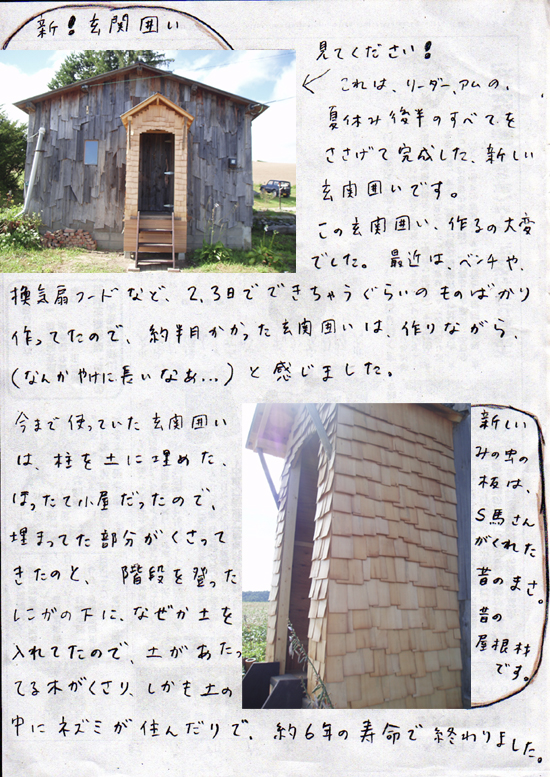 新!玄関囲い
見てください!
これは、リーダー、アムの、
夏休み後半のすべてを
ささげて完成した、新しい
玄関囲いです。
この玄関囲い、作るの大変
でした。最近は、ベンチや、
換気扇フードなど、2、3日でできちゃうぐらいのものばかり
作ってたので、約半月かかった玄関囲いは、作りながら、
(なんかやけに長いなあ...)と感じました。
今まで使っていた玄関囲い
は、柱を土に埋めた、
ほったて小屋だったので、
埋まってた部分がくさって
きたのと、階段を登った
しこがの下に、なぜか土を
入れてたので、土があたっ
てる木がくさり、しかも土の
中にネズミが住んだりで、約6年の寿命で終わりました。
新しい
みの虫の
板は、
S馬さん
がくれた
昔のまさ。
昔の
屋根材
です。